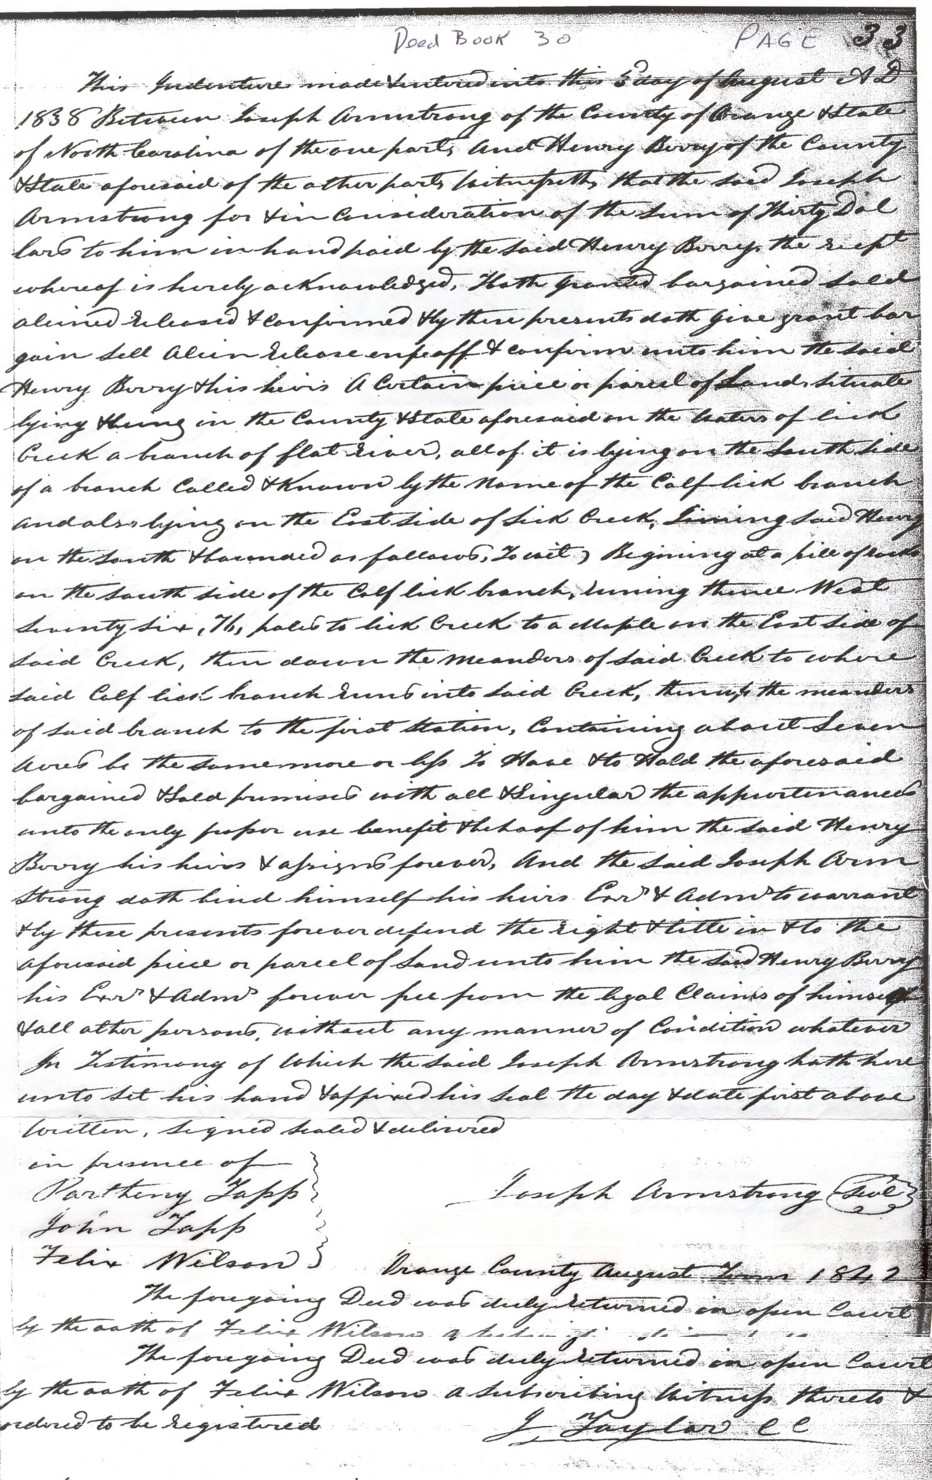 Deed Book 30 PAGE 33
This Indenture made & entered into this 3d day of August A D
1838 Between Joseph Armstrong of the County of Orange & State
of North Carolina of the one part, And Henry Berry of the County
& State aforesaid of the other part, Witnesseth, that the said Joseph
Armstrong for & in Consideration of the Sum of Thirty Dol
lars to him in hand paid by the said Henry Berry, the recept
whereof is hereby acknowledged, Hath granted bargained sold
aliened released & confirmed & by these presents doth give grant bar
gain sell Alien release enfeoff & confirm unto him the said
Henry Berry & his heirs A Certain piece or parcel of Land situate
lying & being in the County & State aforesaid on the Waters of lick
Creek a branch of flat river, all of it is lying on the South side
of a branch Called & Known by the name of the Calf lick branch
and also lying on the East side of Lick Creek, Joining said Henry
on the South & bounded as follows, To wit, Begining at a pile of rocks
on the south side of the Calf lick branch, runing thence West
seventy six, 76, poles to lick Creek to a Maple on the East side of
said Creek, then down the meanders of said Creek to where
said Calf lick branch runs into said Creek, then up the meanders
of said branch to the first station, Containing about Seven
Acres be the same more or less To Have & to Hold the aforesaid
bargained & sold premises with all & Singular the appurtenances
unto the only proper use benefit & behoof of him the said Henry
Berry his heirs & assigns forever, And the said Joseph Arm
strong doth bind himself his heirs Exrs & Admrs to warrant
& by these presents forever defend the right & title in & to the
aforesaid piece or parcel of Land unto him the said Henry Berry
his Exrs & Admrs forever free from the legal Claims of himself
& all other persons, without any manner of Condition whatever
In Testimony of Which the said Joseph Armstrong hath here
unto set his hand & affixed his seal the day & date first above
Written, signed sealed & delivered
in presence of
Partheny Tapp Joseph Armstrong Seal
John Tapp
Felix Wilson
Orange County August Term 1842
The foregoing Deed was duly returned in open Court
by the oath of Felix Wilson a
The foregoing Deed was duly returned in open Court
by the oath of Felix Wilson a Subscribing Witness thereto &
ordered to be registered
J. Taylor CC